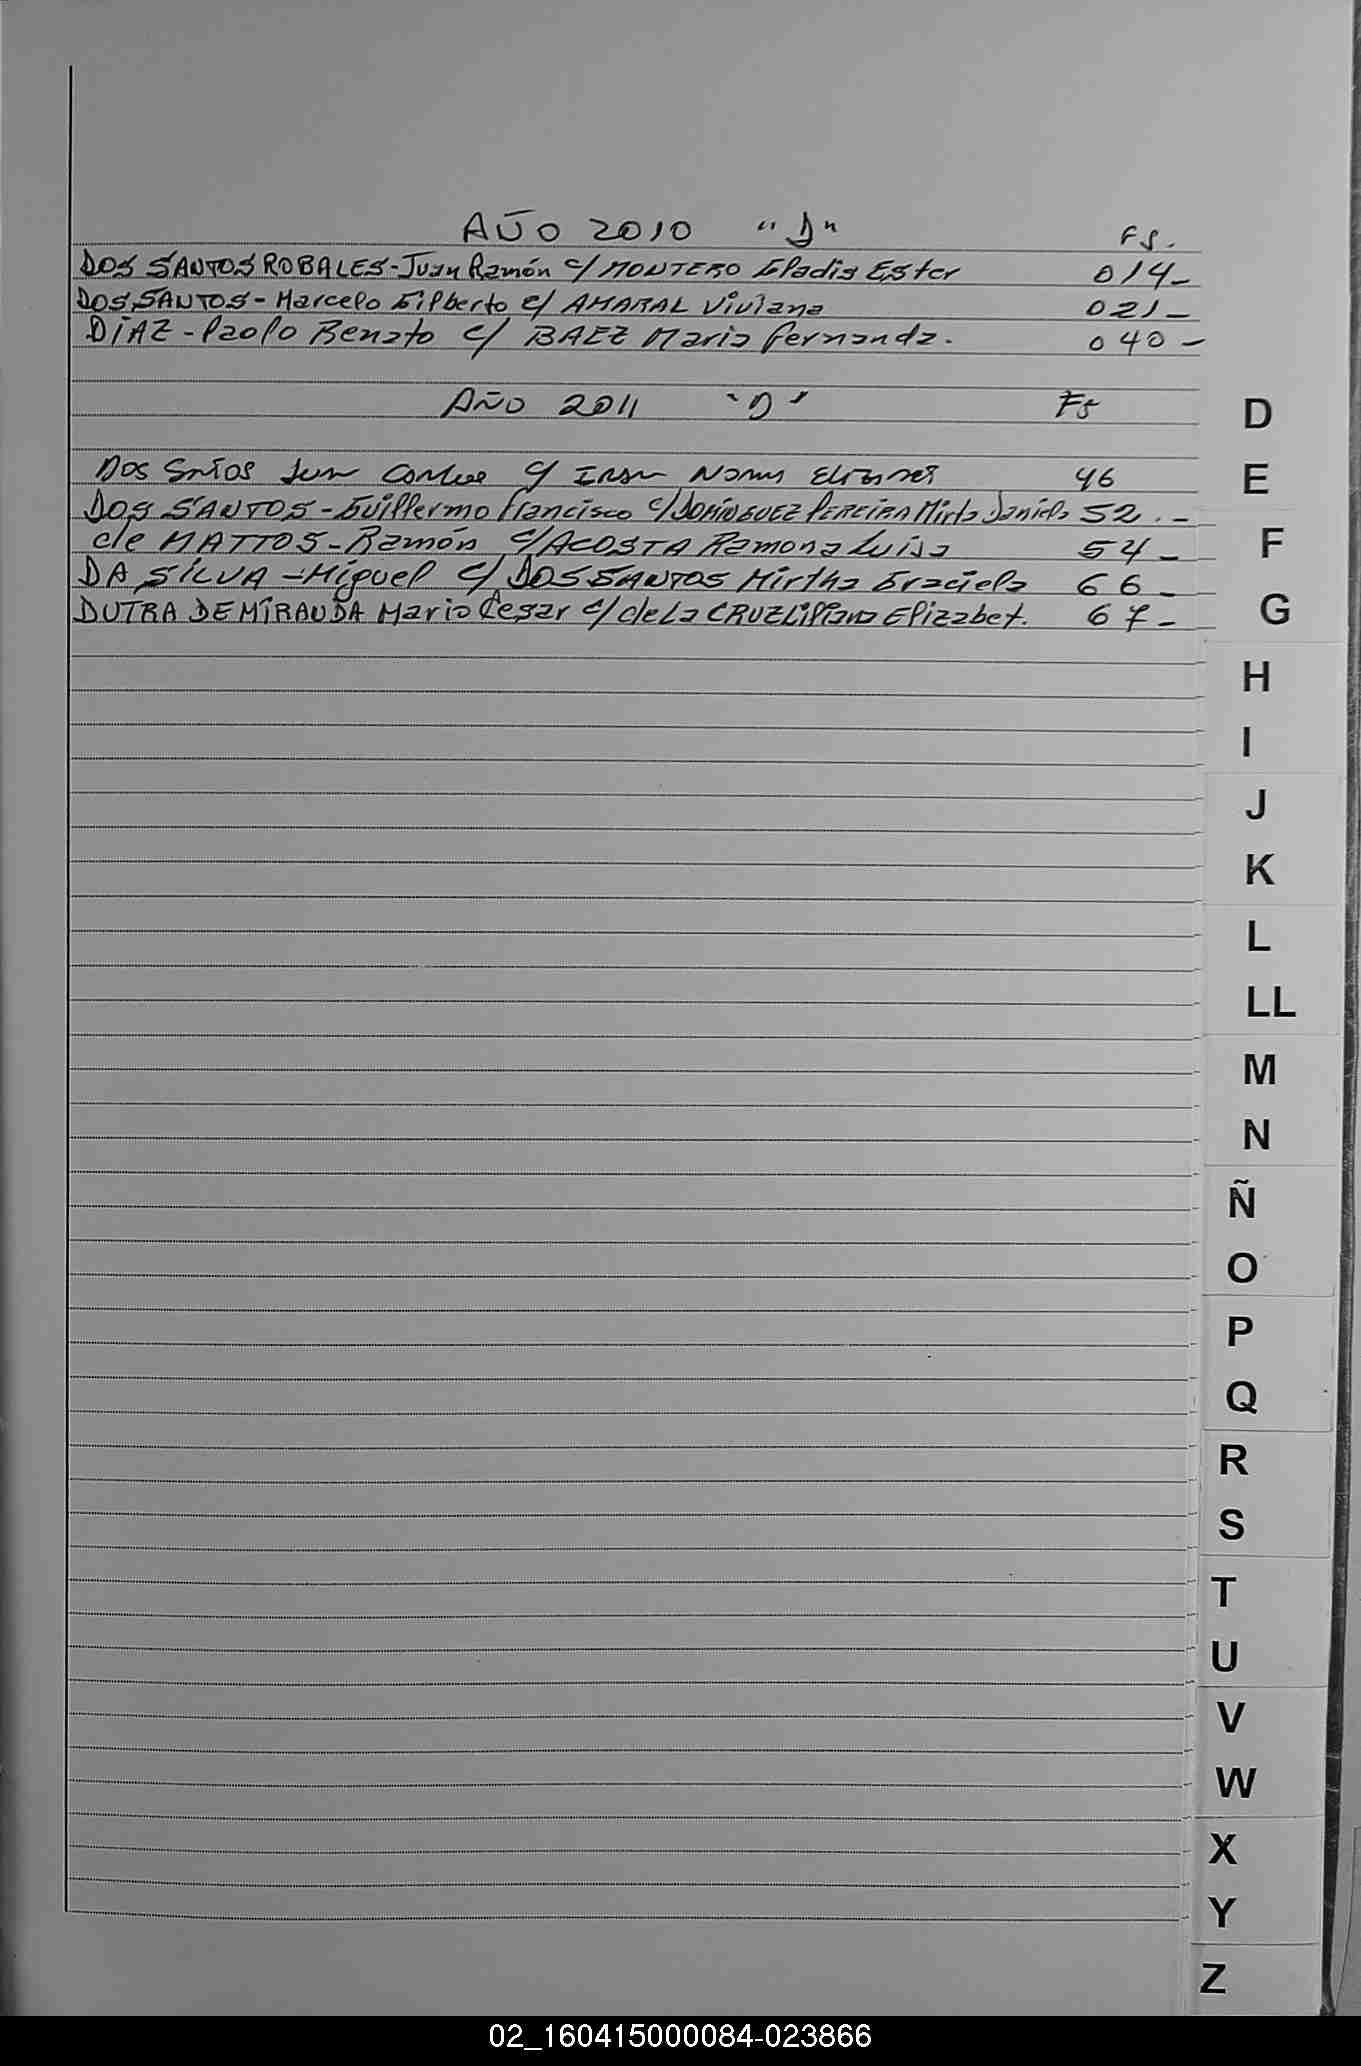 AÑO 2010 "D" FS.
DOS SANTOS ROBALES-Juan Ramón c/ MONTERO Gladis Ester 014-
DOS SANTOS-Marcelo Gilberto c/ AMARAL Viviana 021-
DIAZ-Paolo Renato c/ BAEZ Maria fernanda. 040-
AÑO 2011 "D" FS
DOS Santos Juan Carlos c/ Norma 46
DOS SANTOS-Guillermo francisco c/DOMINGUEZ PEREIRA Mirta Daniela 52.-
de MATTOS-Ramón c/ACOSTA Ramona Luisa 54-
DA SILVA-Miguel c/ DOS SANTOS Mirtha Graciela 66-
DUTRA DE MIRANDA Mario Cesar c/ de La CRUZ Liliana Elizabet. 67-
D
E
F
G
H
I
J
K
L
LL
M
N
Ñ
O
P
Q
R
S
T
U
V
W
X
Y
Z
02_160415000084-023866